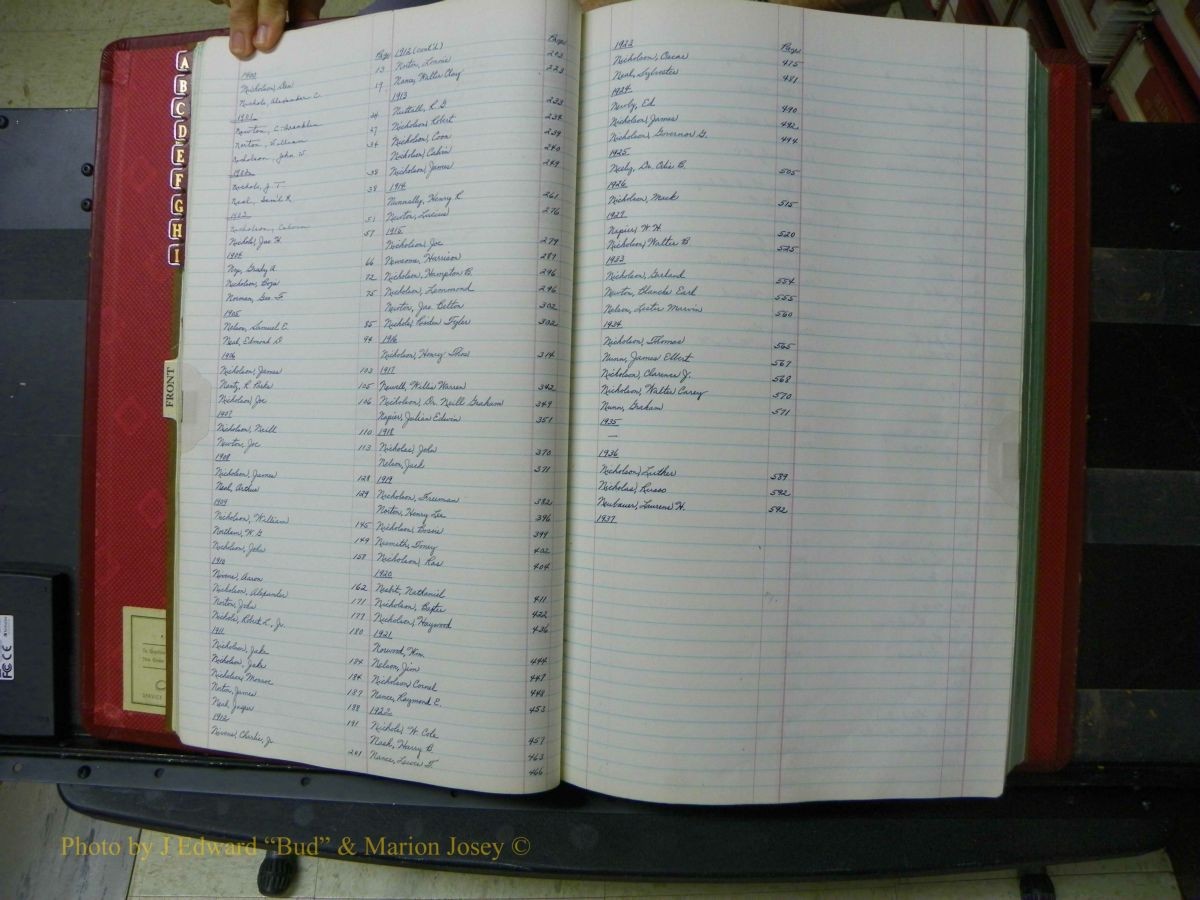 A
B
C
D
E
F
G
H
I
FRONT
Page
1900
Nicholson, Dan 13
Nichols, Alexander C. 19
1901
Newton, C. Franklin 24
Norton, William 27
Nicholson, John W 34
1902
Nichols, J. T. 38
Neal, Sam'l R. 38
1903
Nicholson, Calvin 51
Nichols, Jas H. 57
1904
Nix, Grady A. 66
Nicholson, Boza 72
Norman, Geo. T. 75
1905
Nelson, Samuel E. 85
Neal, Edmond D 94
1906
Nicholson, James 103
Nentz, R. Parks 105
Nicholson, Joe 106
1907
Nicholson, Neill 110
Newton, Joe 113
1908
Nicholson, James 128
Neal, Arthur 129
1909
Nicholson, William 145
Northam, W. G. 149
Nicholson, John 158
1910
Nivens, Aaron 162
Nicholson, Alexander 171
Norton, John 177
Nichols, Robert L., Jr. 180
1911
Nicholson, Jake 184
Nicholson, Jake 184
Nicholson, Monroe 187
Norton, James 188
Neal, Jasper 191
1912
Nivens, Charlie, Jr 201
1912 (cont'd) Page
Norton, Lonnie 203
Nance, Walter Clay 223
1913
Nuttall, R. D 233
Nicholson, Robert 234
Nicholson, Coon 239
Nicholson, Calvin 240
Nicholson, James 249
1914
Nunnally, Henry R 261
Newton, Lucius 276
1915
Nicholson, Joe 279
Newsome, Harrison 287
Nicholson, Hampton B. 296
Nicholson, Lemmond 296
Newton, Jas. Belton 302
Nichols, Linden Tyler 302
1916
Nicholson, Henry Thos 314
1917
Newell, Willis Warren 342
Nicholson, Dr. Neill Graham 349
Napier, Julian Edwin 351
1918
Nicholas, John 370
Nelson, Jack 371
1919
Nicholson, Freeman 382
Norton, Henry Lee 396
Nicholson, Bossie 399
Nesmith, Toney 402
Nicholson, Ras 404
1920
Nesbit, Nathaniel 411
Nicholson, Baxter 422
Nicholson, Haywood 436
1921
Norwood, Wm. 444
Nelson, Jim 447
Nicholson, Cornel 448
Nance, Raymond E. 453
1922
Nichols, W. Cole 457
Nash, Harry B 463
Nance, Lewis T. 466
1923 Page
Nicholson, Oscar 475
Neal, Sylvester 481
1924
Newby, Ed 490
Nicholson, James 492
Nicholson, Governor G. 494
1925
Neely, Dr. Otis B. 505
1926
Nicholson, Mack 515
1927
Napier, W. H. 520
Nicholson, Walter B 525
1933
Nicholson, Garland 554
Newton, Blanche Earl 555
Nelson, Lester Marvin 560
1934
Nicholson, Thomas 565
Nunn, James Elbert 567
Nicholson, Clarence J. 568
Nicholson, Walter Carey 570
Nunn, Graham 571
1935
—
1936
Nicholson, Luther 589
Nicholas, Russo 592
Neubauer, Laurens H. 592
1937
FC CE
SERVICE
Photo by J Edward "Bud" & Marion Josey ©